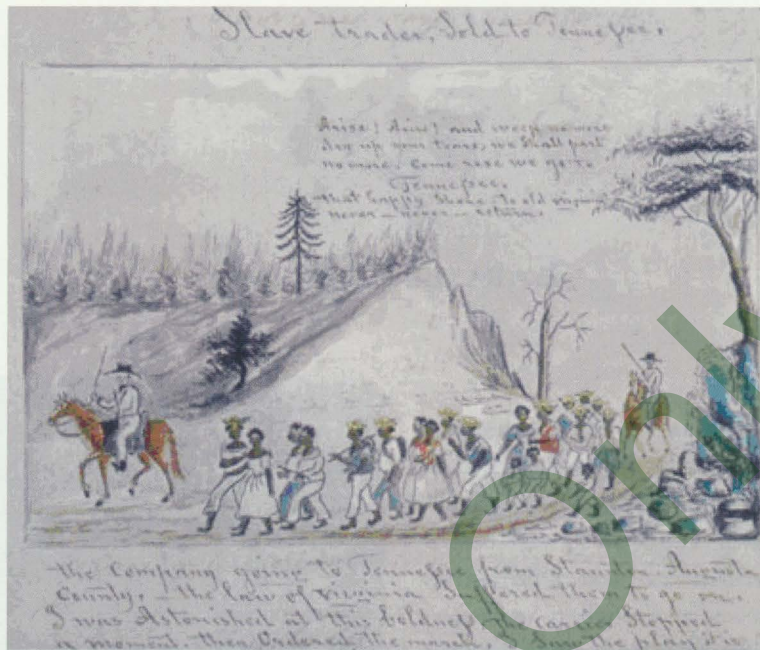 Slave trader, Sold to Tennessee,
Arise! Arise! and weep no more
dry up your tears, we shall part
no more, Come rose we go to
Tennessee,
that happy Shore, to old virginia
never — never — return.
the Company going to Tennessee from Staunton, Augusta
County, — the law of virginia Suffered them to go on.
I was Astonished at this boldness, the carrier Stopped
a moment, then Ordered the march, I Saw the play it is
On